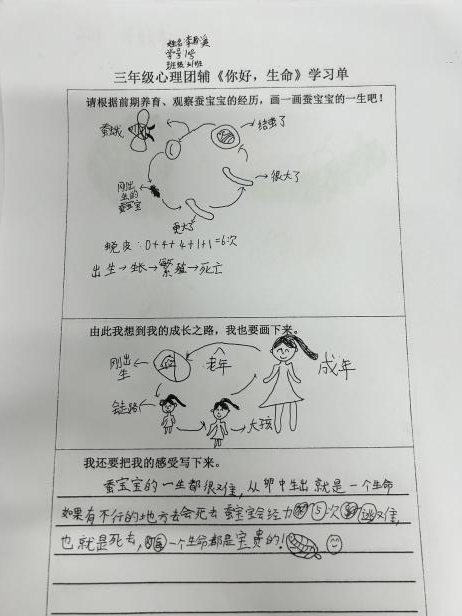 姓名李
学号1号
班级
三年级心理团辅《你好，生命》学习单
请根据前期养育、观察蚕宝宝的经历，画一画蚕宝宝的一生吧！
蚕蛾
结茧了
很大了
刚出生的蚕宝宝
更大了
蜕皮：0+4+4+1+1=6次
出生→生长→繁殖→死亡
由此我想到我的成长之路，我也要画下来。
刚出生
老年
成年
会走路
大孩
我还要把我的感受写下来。
蚕宝宝的一生都很难，从卵中生出就是一个生命
如果有不行的地方去会死去 蚕宝宝经 5次
也就是死去， 一个生命都是宝贵的！